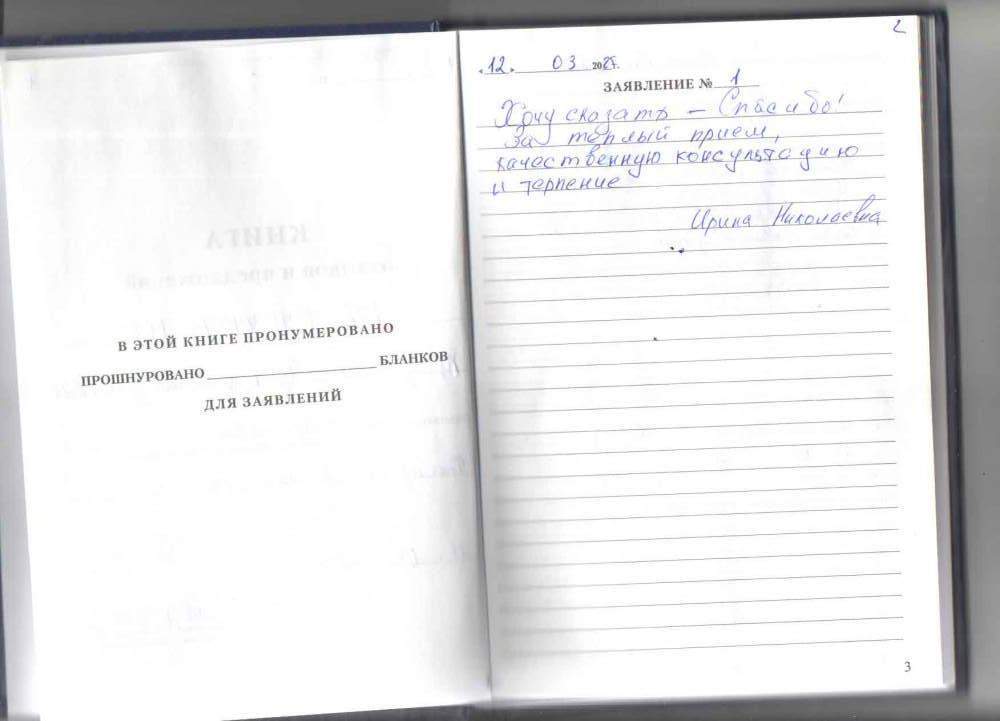 В ЭТОЙ КНИГЕ ПРОНУМЕРОВАНО
ПРОШНУРОВАНО БЛАНКОВ
ДЛЯ ЗАЯВЛЕНИЙ
2
«12» 03 20 г.
ЗАЯВЛЕНИЕ № 1
Хочу сказать – Спасибо!
За тёплый прием,
качественную консультацию
и терпение
Ирина Николаевна
3